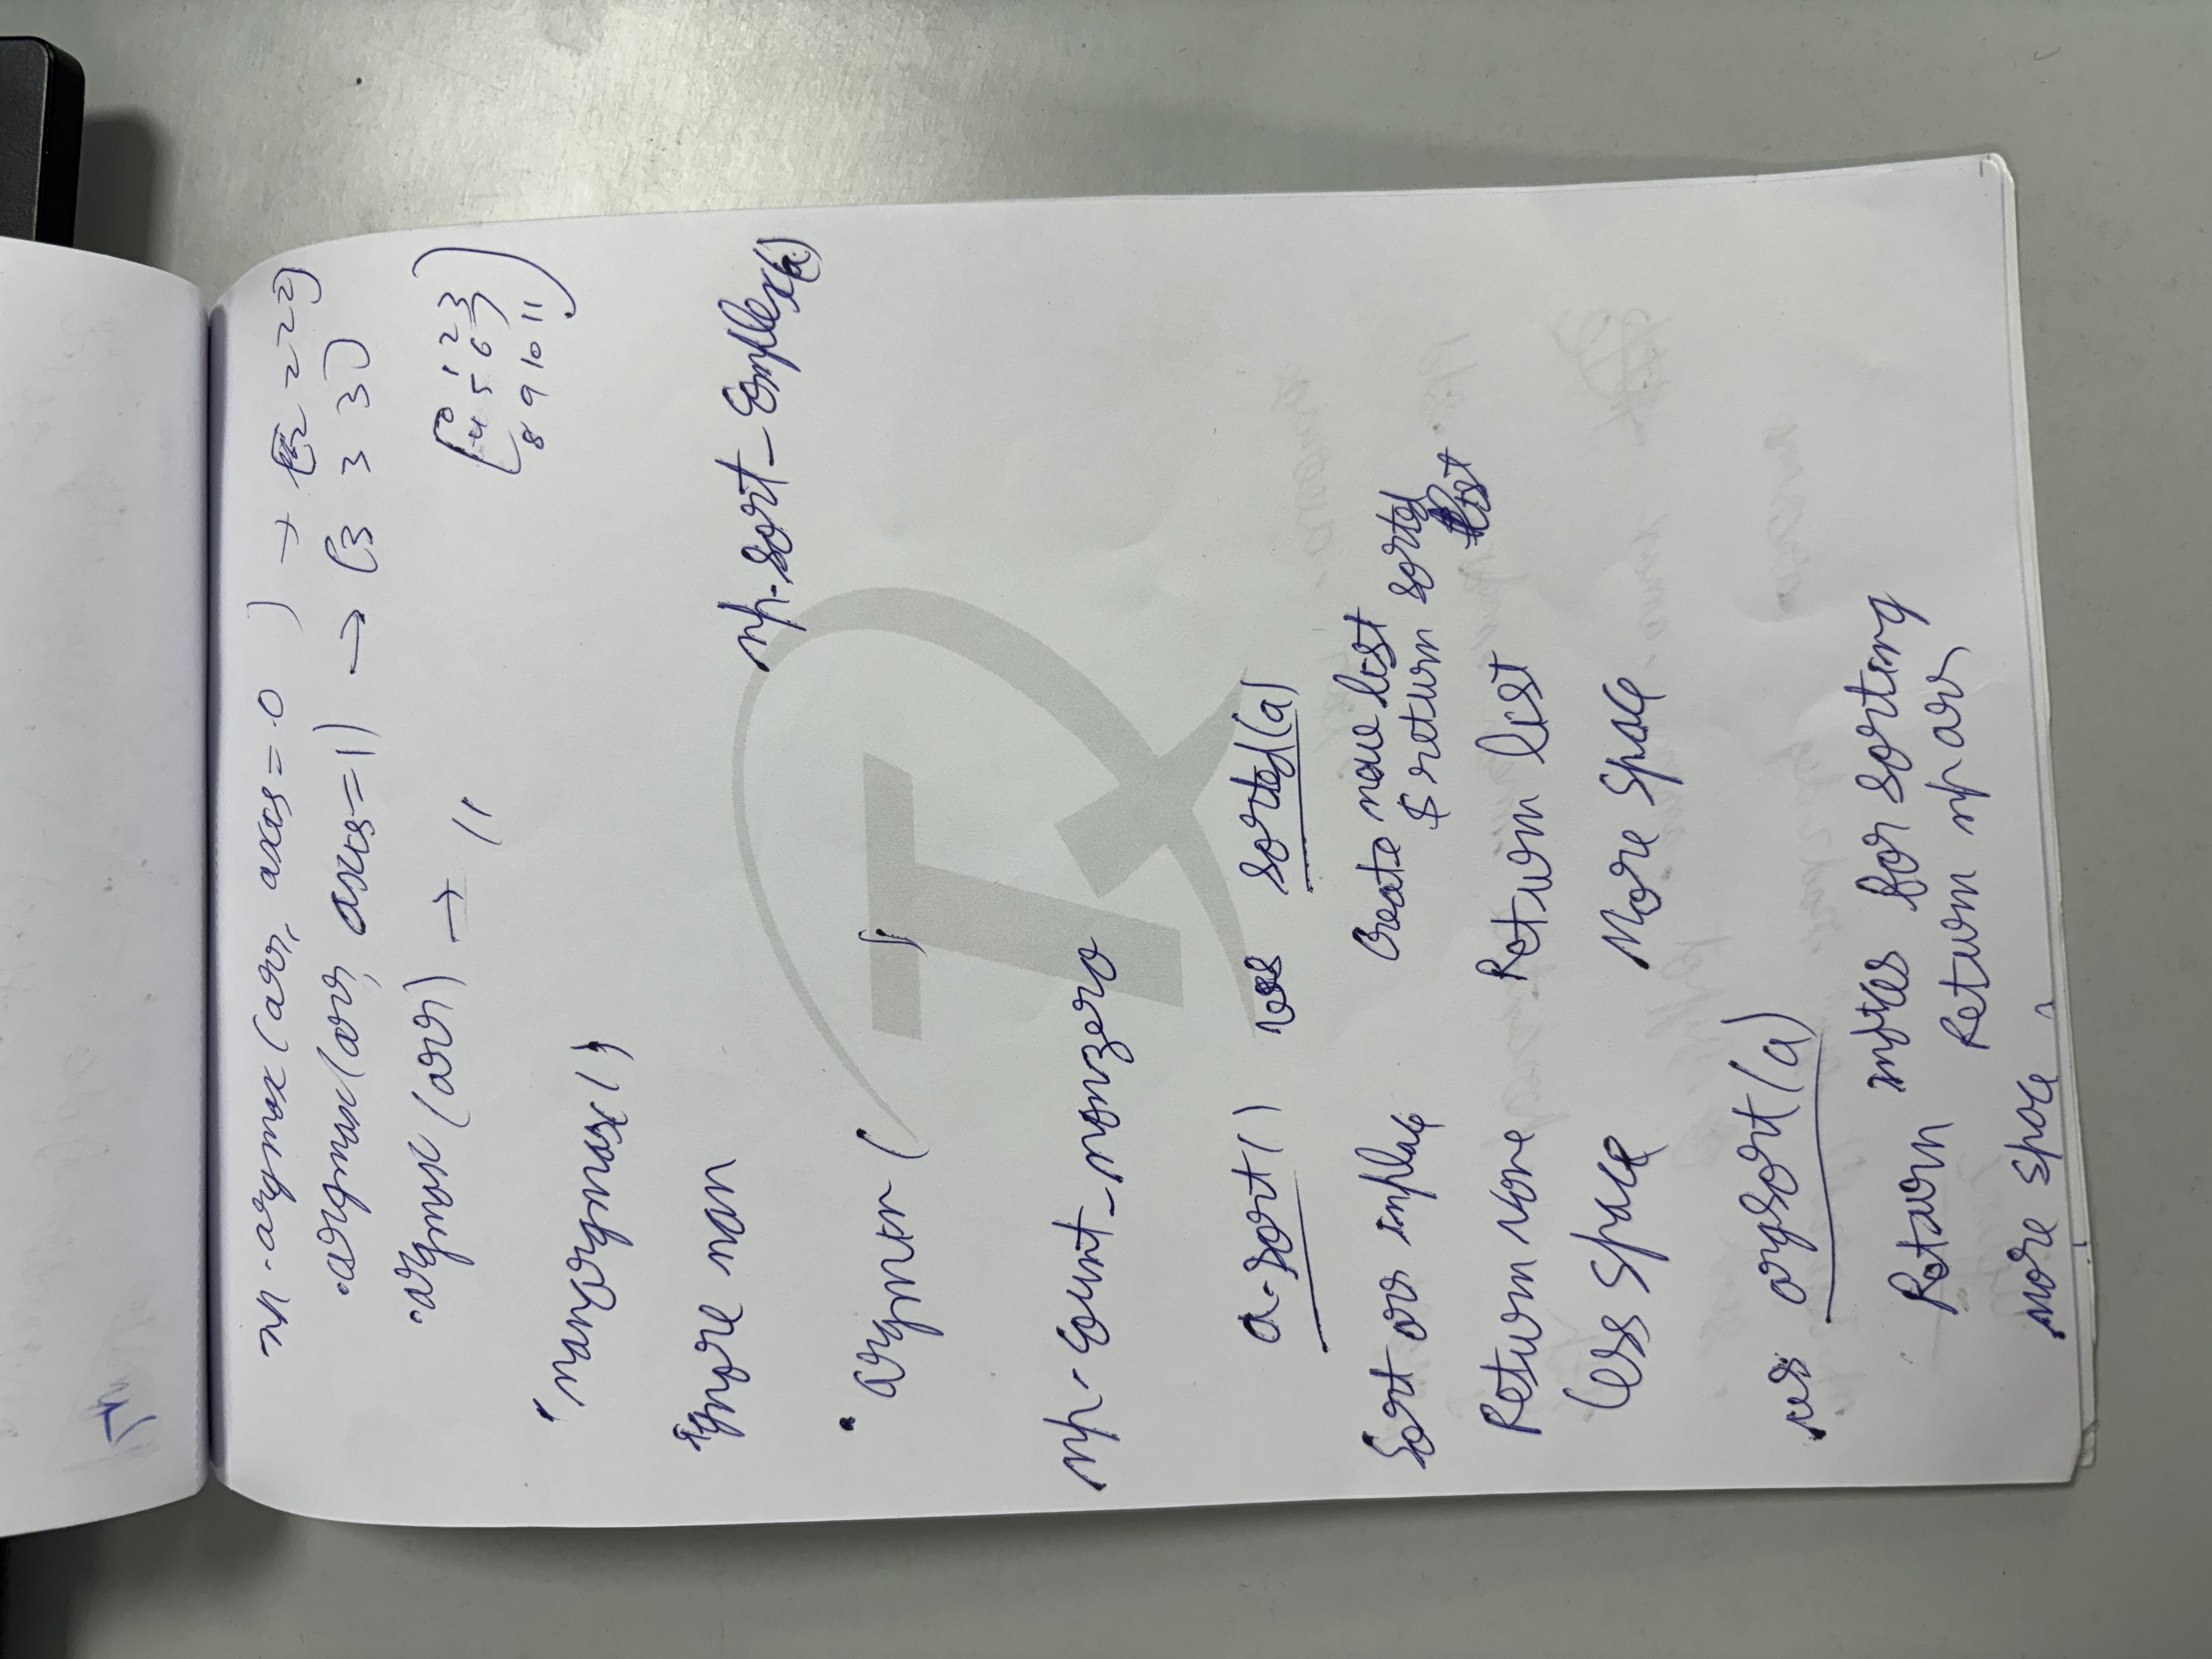 np.argmax(arr, axis=0 ) → [2 2 2 2]
.argmax(arr, axis=1) → [3 3 3]
.argmax(arr) → 11
[0 1 2 3
4 5 6 7
8 9 10 11]
.nanargmax()
ignore nan
np.sort_complex(a)
. argmin( )
np.count_nonzero
a.sort() vs sorted(a)
Sort arr inplace
Create new list
& return sorted
list
Return None Return list
Less space More space
vs argsort(a)
Return indices for sorting
Return np arr
More space